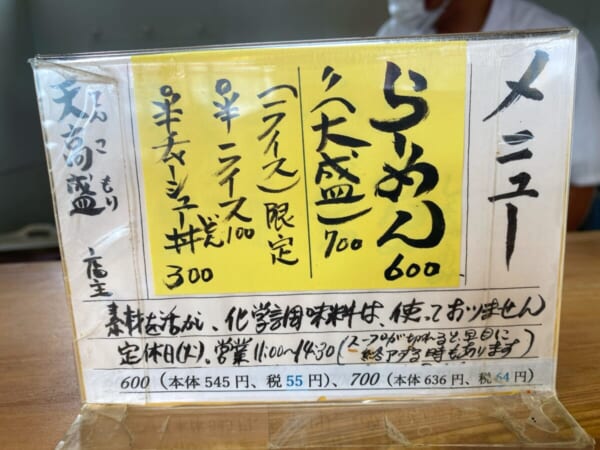 メニュー
らーめん 600
〃(大盛) 700
(ライス)限定
半ライス 100
半チャーシュー丼 どん 300
天高盛 てんこもり 店主
素材を活かし、化学調味料は、使っておりません
定休日(火)、営業11:00~14:30(スープが切れると早目に終アする時もあります)
600(本体 545円、税 55円)、700(本体 636円、税 64円)